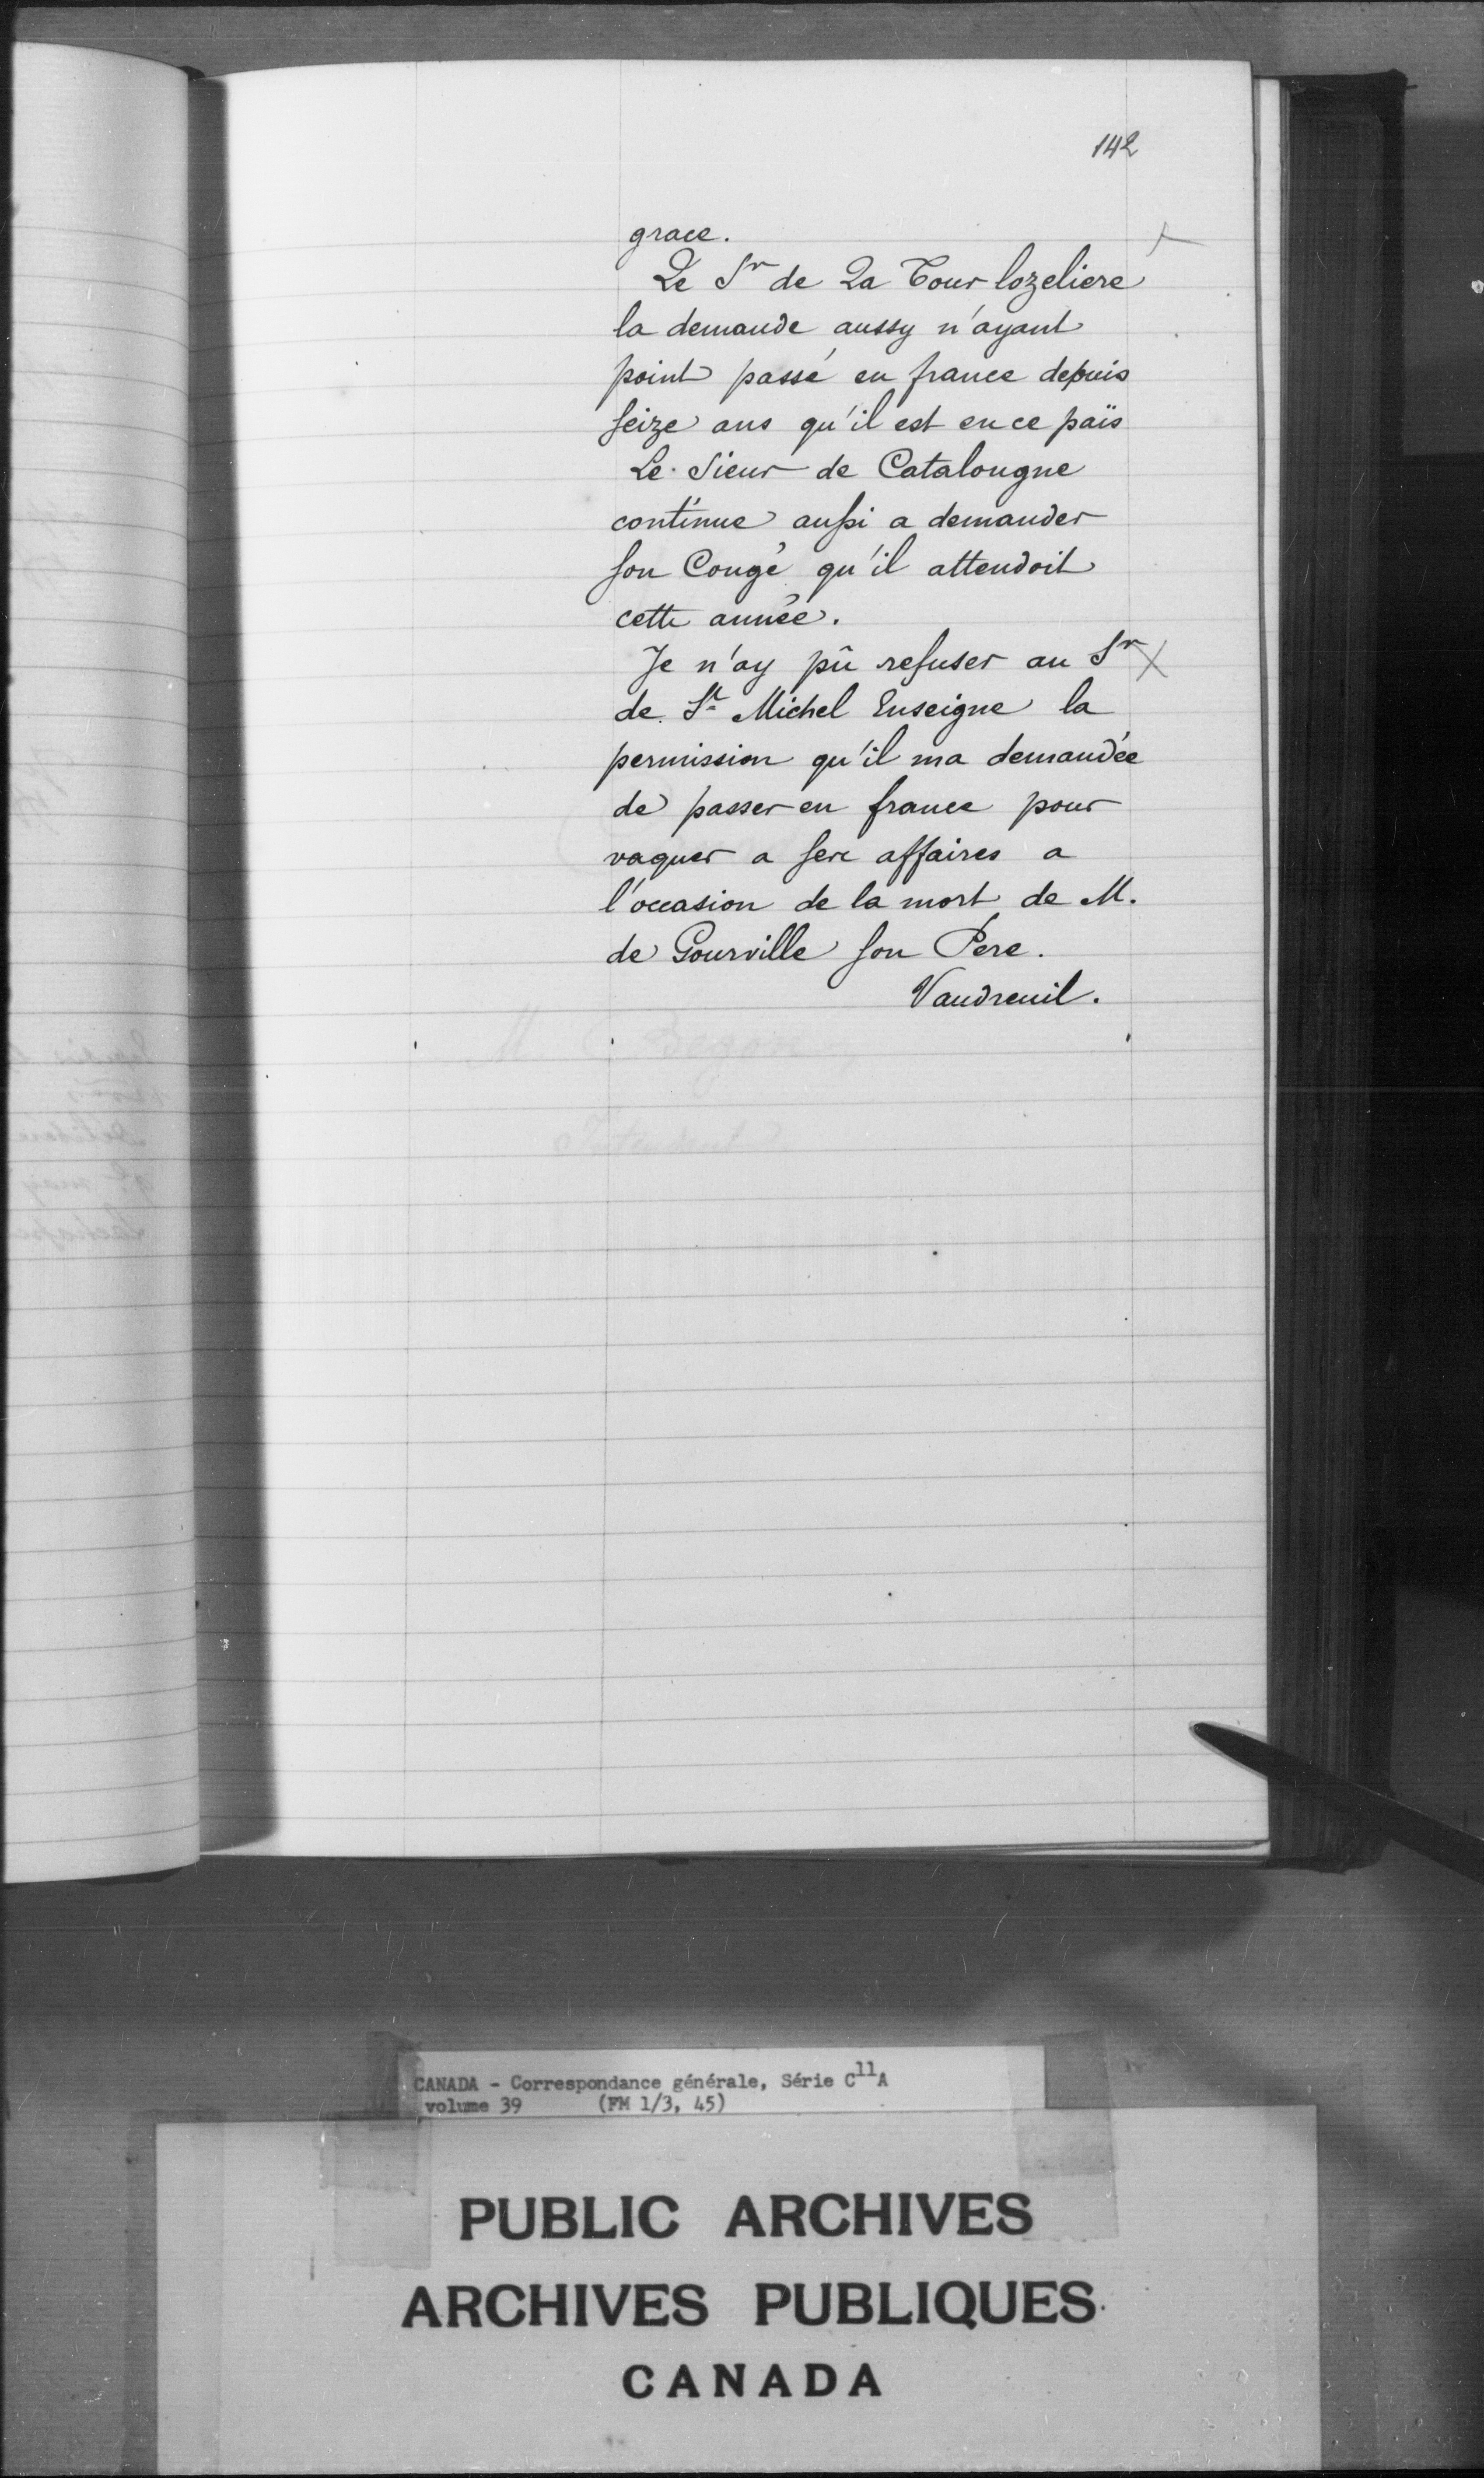 142
grace.
Le Sr de La Tour lozeliere
la demande aussy n'ayant
point passé en france depuis
seize ans qu'il est en ce païs
Le Sieur de Catalougne
continue aussi a demander
son Congé qu'il attendoit
cette année.
Je n'ay pû refuser au Sr X
de St Michel Enseigne la
permission qu'il ma demandée
de passer en france pour
vaquer a ses affaires a
l'occasion de la mort de M.
de Gourville son Pere.
Vaudreuil.
M. Begon
Intendant
CANADA - Correspondance générale, Série C11A
volume 39 (FM 1/3, 45)
PUBLIC ARCHIVES
ARCHIVES PUBLIQUES
CANADA